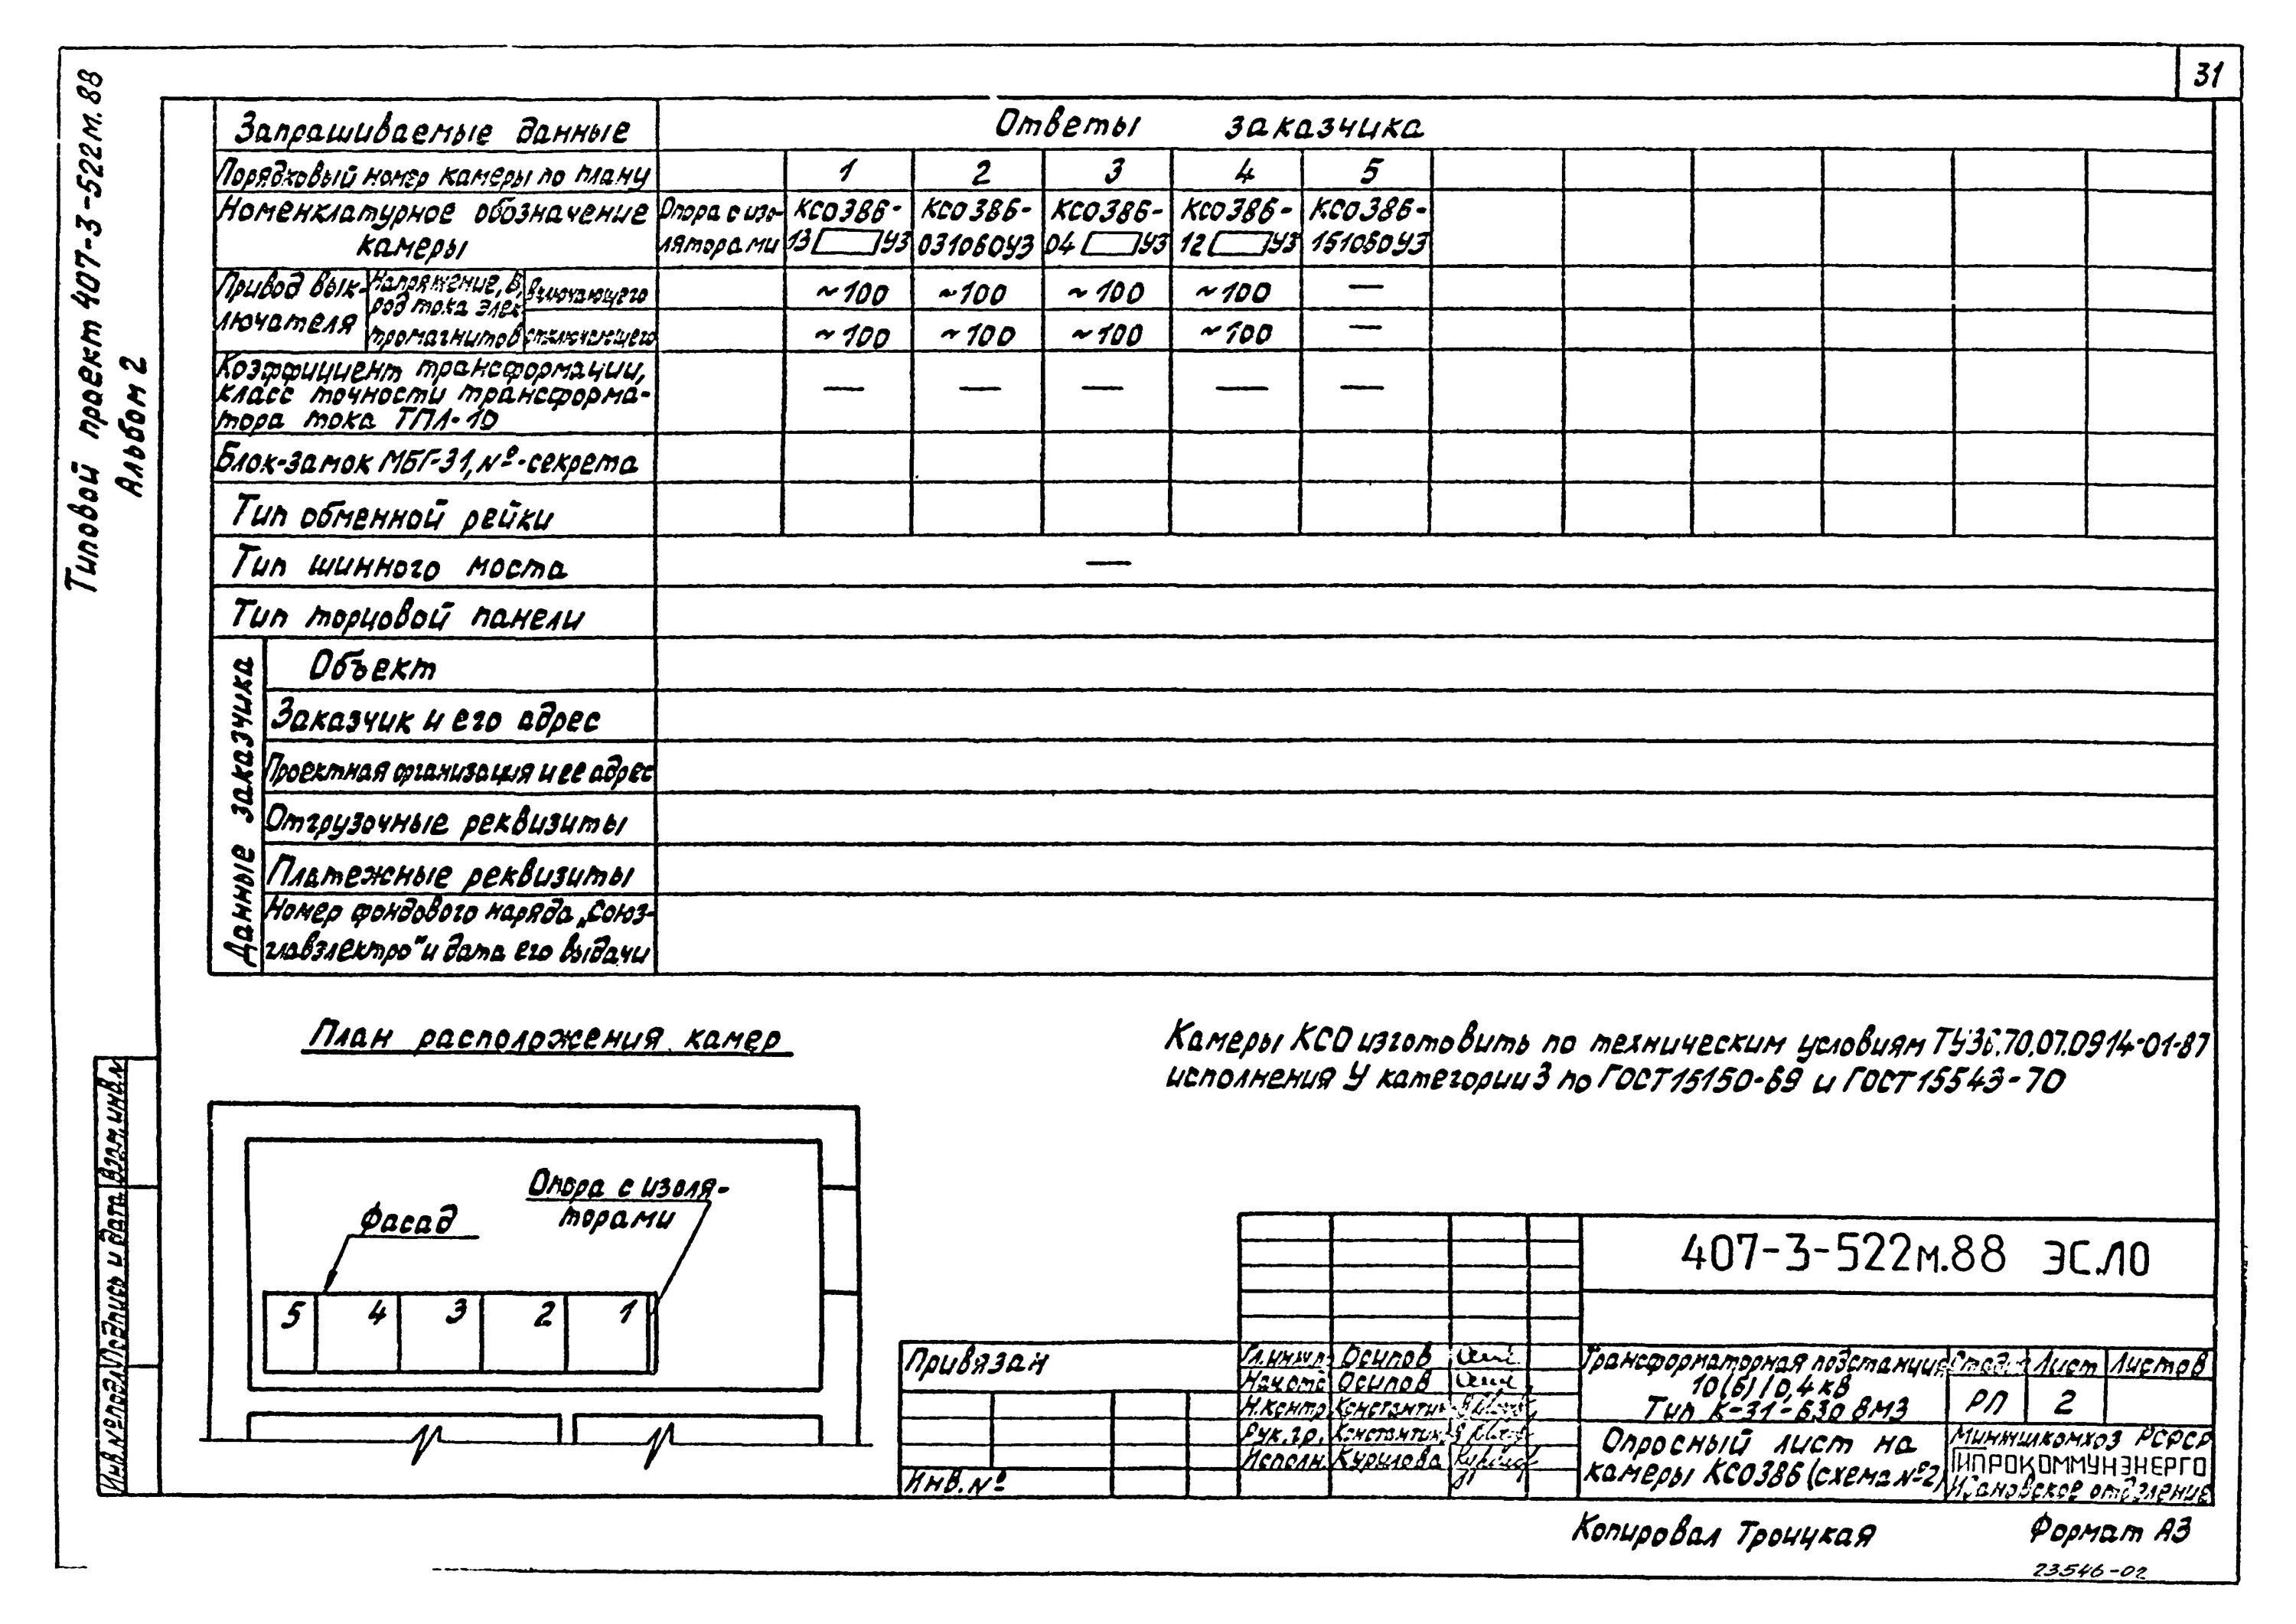 31
Типовой проект 407-3-522м.88
Альбом 2
Запрашиваемые данные
Ответы заказчика
Порядковый номер камеры по плану
1 2 3 4 5
Номенклатурное обозначение камеры
Опора с изо-
ляторами
КСО386-
13 УЗ
КСО386-
03106ОУЗ
КСО386-
04 УЗ
КСО386-
12 УЗ
КСО386-
15105ОУЗ
Привод вык-
лючателя
Напряжение, В,
род тока элек
тромагнитов
включающего
~100 ~100 ~100 ~100 —
отключающего
~100 ~100 ~100 ~100 —
Коэффициент трансформации,
класс точности трансформа-
тора тока ТПЛ-10
— — — — —
Блок-замок МБГ-31, №-секрета
Тип обменной рейки
Тип шинного моста
—
Тип торцовой панели
Данные заказчика
Объект
Заказчик и его адрес
Проектная организация и ее адрес
Отгрузочные реквизиты
Платежные реквизиты
Номер фондового наряда „Союз-
главэлектро" и дата его выдачи
План расположения камер
Камеры КСО изготовить по техническим условиям ТУ36.70.07.0914-01-87
исполнения У категории 3 по ГОСТ 15150-69 и ГОСТ 15543-70
Опора с изоля-
торами
Фасад
5 4 3 2 1
Взам. инв.№
Подпись и дата
Инв.№ подл.
407-3-522м.88 ЭС.ЛО
Привязан
Инв.№
Гл.инж.п. Осипов
Нач.отд Осипов
Н.контр. Константин
Рук.гр. Константин
Исполн. Курилова
Трансформаторная подстанция
10(6)/0,4 кВ
Тип К-31-630 ВМЗ
Стадия Лист Листов
РП 2
Опросный лист на
камеры КСО386 (схема №2)
Минжилкомхоз РСФСР
ГИПРОКОММУНЭНЕРГО
Ивановское отделение
Копировал Троицкая
Формат А3
23546-02